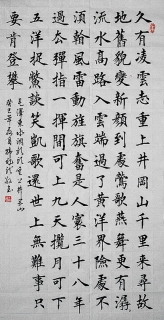 久有凌雲志重上井岡山千里來尋故
地舊貌變新顏到處鶯歌燕舞更有潺
流水高路入雲端過了黃洋界險處不
須看風雷動旌旗奮是人寰三十八年
過去彈指一揮間可上九天攬月可下
五洋捉鱉談笑凱歌還世上無難事只
要肯登攀
毛澤東水調歌頭重上井岡山